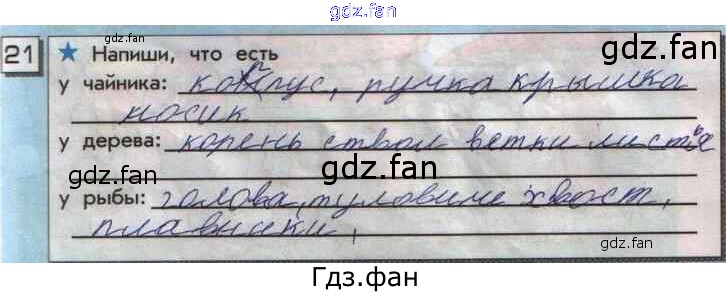 gdz.fan
21 ★ Напиши, что есть gdz.fan
у чайника: корпус, ручка крышка
носик
у дерева: корень ствол ветки листья
gdz.fan gdz.fan
у рыбы: голова, туловище хвост,
плавники,
Гдз.фан